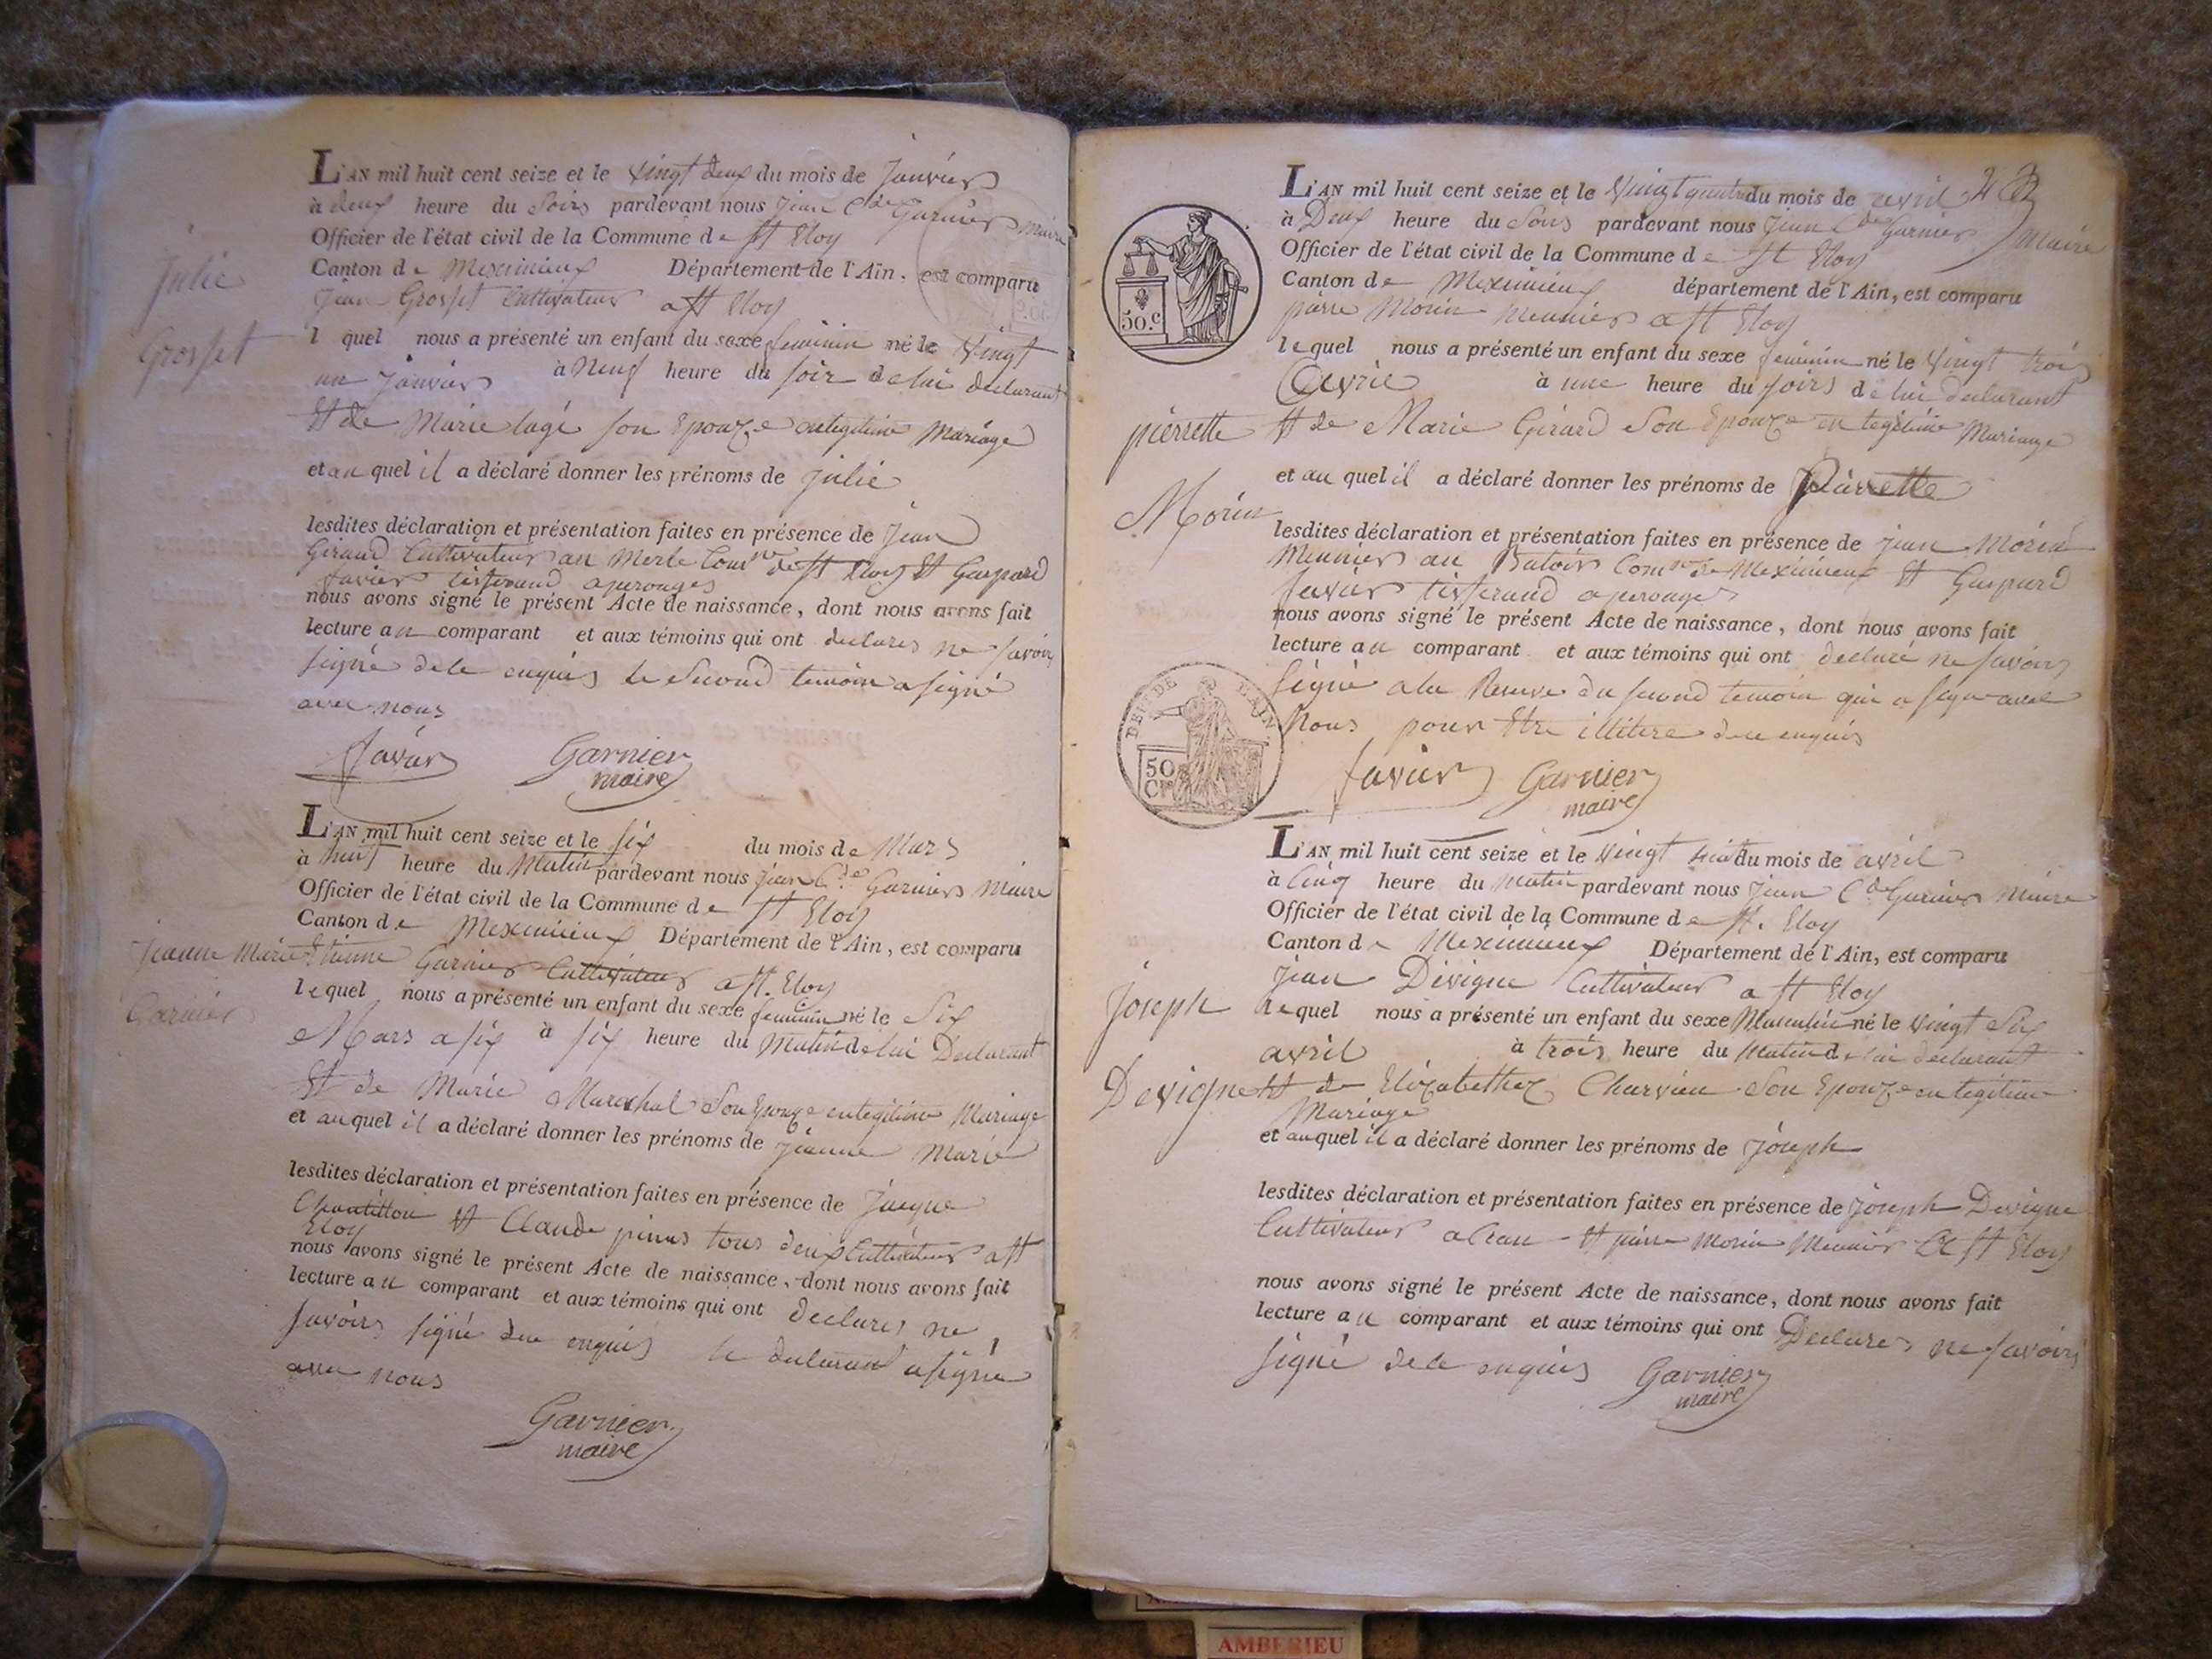 Julie
Grosset
L'AN mil huit cent seize et le vingt deux du mois de Janvier
à deux heure du Soirs pardevant nous Jean Cde Garnier maire
Officier de l'état civil de la Commune de St Eloy
Canton de Meximieux Département de l'Ain, est comparu
Jean Grosset Cultivateur a St Eloy
lequel nous a présenté un enfant du sexe feminin né le vingt
un Janvier à Neuf heure du soir de lui declarant
Et de Marie son Epouze en legitime Mariage
et au quel il a déclaré donner les prénoms de Julie
lesdites déclaration et présentation faites en présence de Jean
Giraud Cultivateur au Merle Comne de St Eloy Et Gaspard
favier tisserand a perouges
nous avons signé le présent Acte de naissance, dont nous avons fait
lecture au comparant et aux témoins qui ont declares ne savoir
signé de ce enquis le Second temoin a signé
avec nous
favier Garnier
maire
Jeanne Marie
Garnier
L'AN mil huit cent seize et le six du mois de Mars
à heure du Matin pardevant nous Jean Cde Garnier Maire
Officier de l'état civil de la Commune de St Eloy
Canton de Meximieux Département de l'Ain, est comparu
Etienne Garnier Cultivateur a St. Eloy
lequel nous a présenté un enfant du sexe feminin né le Six
Mars a six à six heure du Matin de lui Declarant
Et de Marie Marechal Son Epouze en legitime Mariage
et au quel il a déclaré donner les prénoms de Jeanne Marie
lesdites déclaration et présentation faites en présence de Jacque
Chantillon Et Claude tous deux Cultivateur a St
Eloy
nous avons signé le présent Acte de naissance, dont nous avons fait
lecture au comparant et aux témoins qui ont declares ne
savoirs signé de ce enquis le declarant a signé
avec nous
Garnier
maire
L'AN mil huit cent seize et le Vingt quatre du mois de avril
à Deux heure du Soirs pardevant nous Jean Cde Garnier maire
Officier de l'état civil de la Commune de St Eloy
Canton de Meximieux département de l'Ain, est comparu
50.c
pierre Morin Meunier a St Eloy
lequel nous a présenté un enfant du sexe feminin né le Vingt trois
avril à une heure du soirs de lui declarant
pierrette
Morin
Et de Marie Girard Son Epouze en legitime Mariage
et au quel il a déclaré donner les prénoms de Pierrette
lesdites déclaration et présentation faites en présence de Jean Morin
Meunier au Batoir Comne de Meximieux Et Gaspard
favier tisserand a perouges
nous avons signé le présent Acte de naissance, dont nous avons fait
lecture au comparant et aux témoins qui ont declaré ne savoirs
signé a la Reserve du second temoin qui a signe avec
Nous pour Etre de ce enquis
DEPT DE L'AIN
50
CES
favier Garnier
maire
L'AN mil huit cent seize et le vingt du mois de avril
à Cinq heure du matin pardevant nous Jean Cde Garnier Maire
Officier de l'état civil de la Commune de St. Eloy
Canton de Meximieux Département de l'Ain, est comparu
Jean Devigne Cultivateur a St Eloy
Joseph
Devigne
lequel nous a présenté un enfant du sexe Masculin né le vingt Six
avril à trois heure du Matin de lui declarant
Et de Elizabethez Charvieu Son Epouze en legitime
Mariage
et au quel il a déclaré donner les prénoms de Joseph
lesdites déclaration et présentation faites en présence de Joseph Devigne
Cultivateur a Cran Et pierre Morin Meunier a St Eloy
nous avons signé le présent Acte de naissance, dont nous avons fait
lecture au comparant et aux témoins qui ont Declares ne savoirs
signé de ce enquis Garnier
maire
AMBERIEU